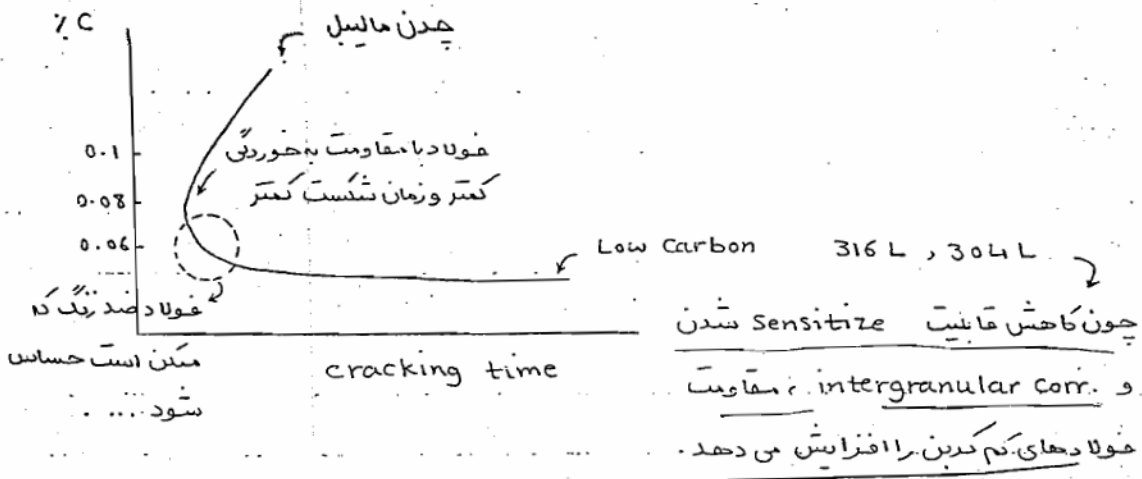 % C
چدن مالیبل
0.1
0.08
0.06
فولاد با مقاومت به خوردگی
کمتر و زمان شکست کمتر
Low Carbon 316 L , 304 L
فولاد ضد زنگ که
ممکن است حساس
شود ....
cracking time
چون کاهش قابلیت Sensitize شدن
و intergranular corr. ، مقاومت
فولادهای کم کربن را افزایش می دهد .